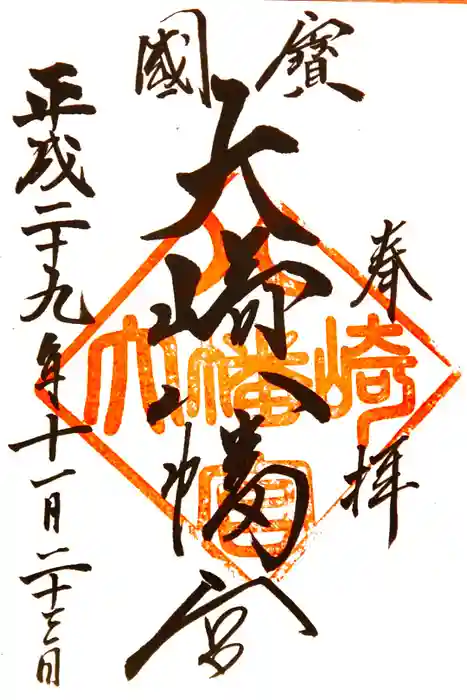 國寶
奉拝
大崎八幡宮
平成二十九年十一月二十三日
大崎八幡宮